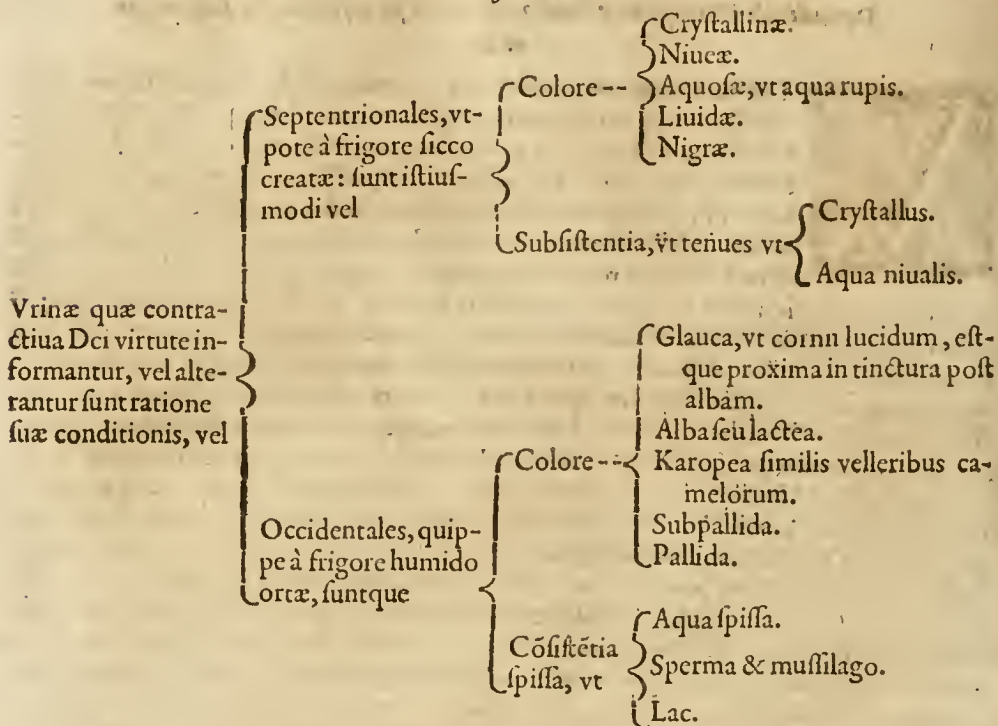 Vrinæ quæ contra-
ctiua Dei virtute in-
formantur, vel alte-
rantur ſunt ratione
ſuæ conditionis, vel
Septentrionales, vt-
pote à frigore ſicco
creatæ: ſunt iſtiuſ-
modi vel
Colore --
Cryſtallinæ.
Niueæ.
Aquoſæ, vt aqua rupis.
Liuidæ.
Nigræ.
Subſiſtentia, vt tenues vt
Cryſtallus.
Aqua niualis.
Occidentales, quip-
pe à frigore humido
ortæ, ſuntque
Colore --
Glauca, vt cornu lucidum, eſt-
que proxima in tinctura poſt
albam.
Alba ſeu lactea.
Karopea ſimilis velleribus ca-
melorum.
Subpallida.
Pallida.
Cōſiſtētia
ſpiſſa, vt
Aqua ſpiſſa.
Sperma & muſſilago.
Lac.